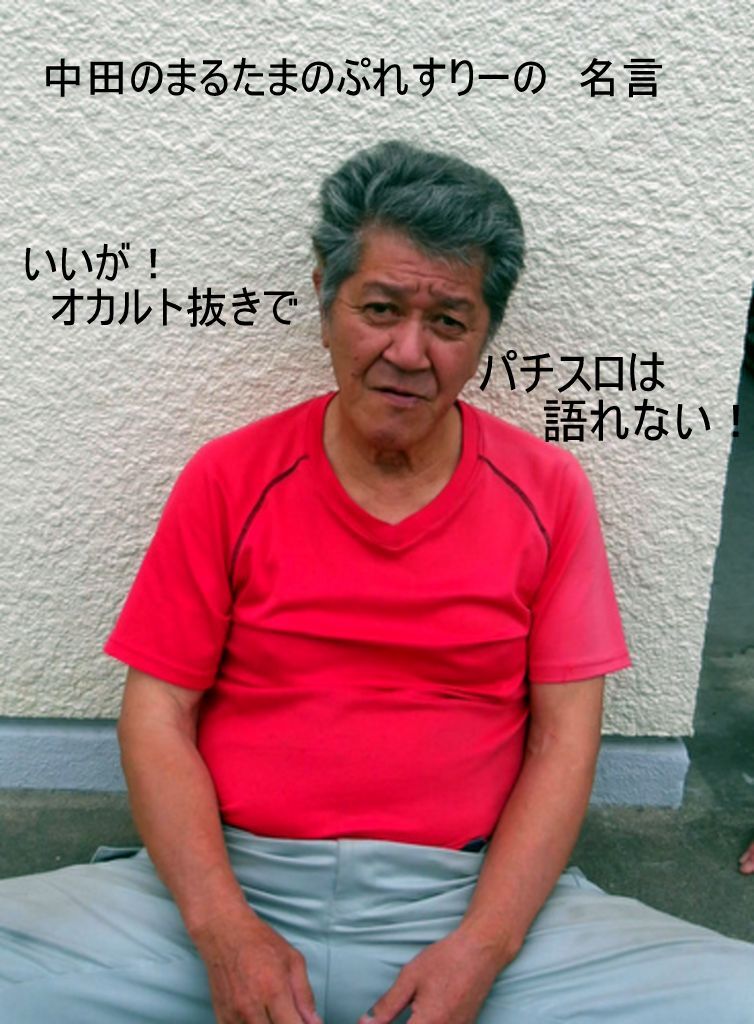 中田のまるたまのぷれすりーの　名言
いいが！
オカルト抜きで
パチスロは
語れない！